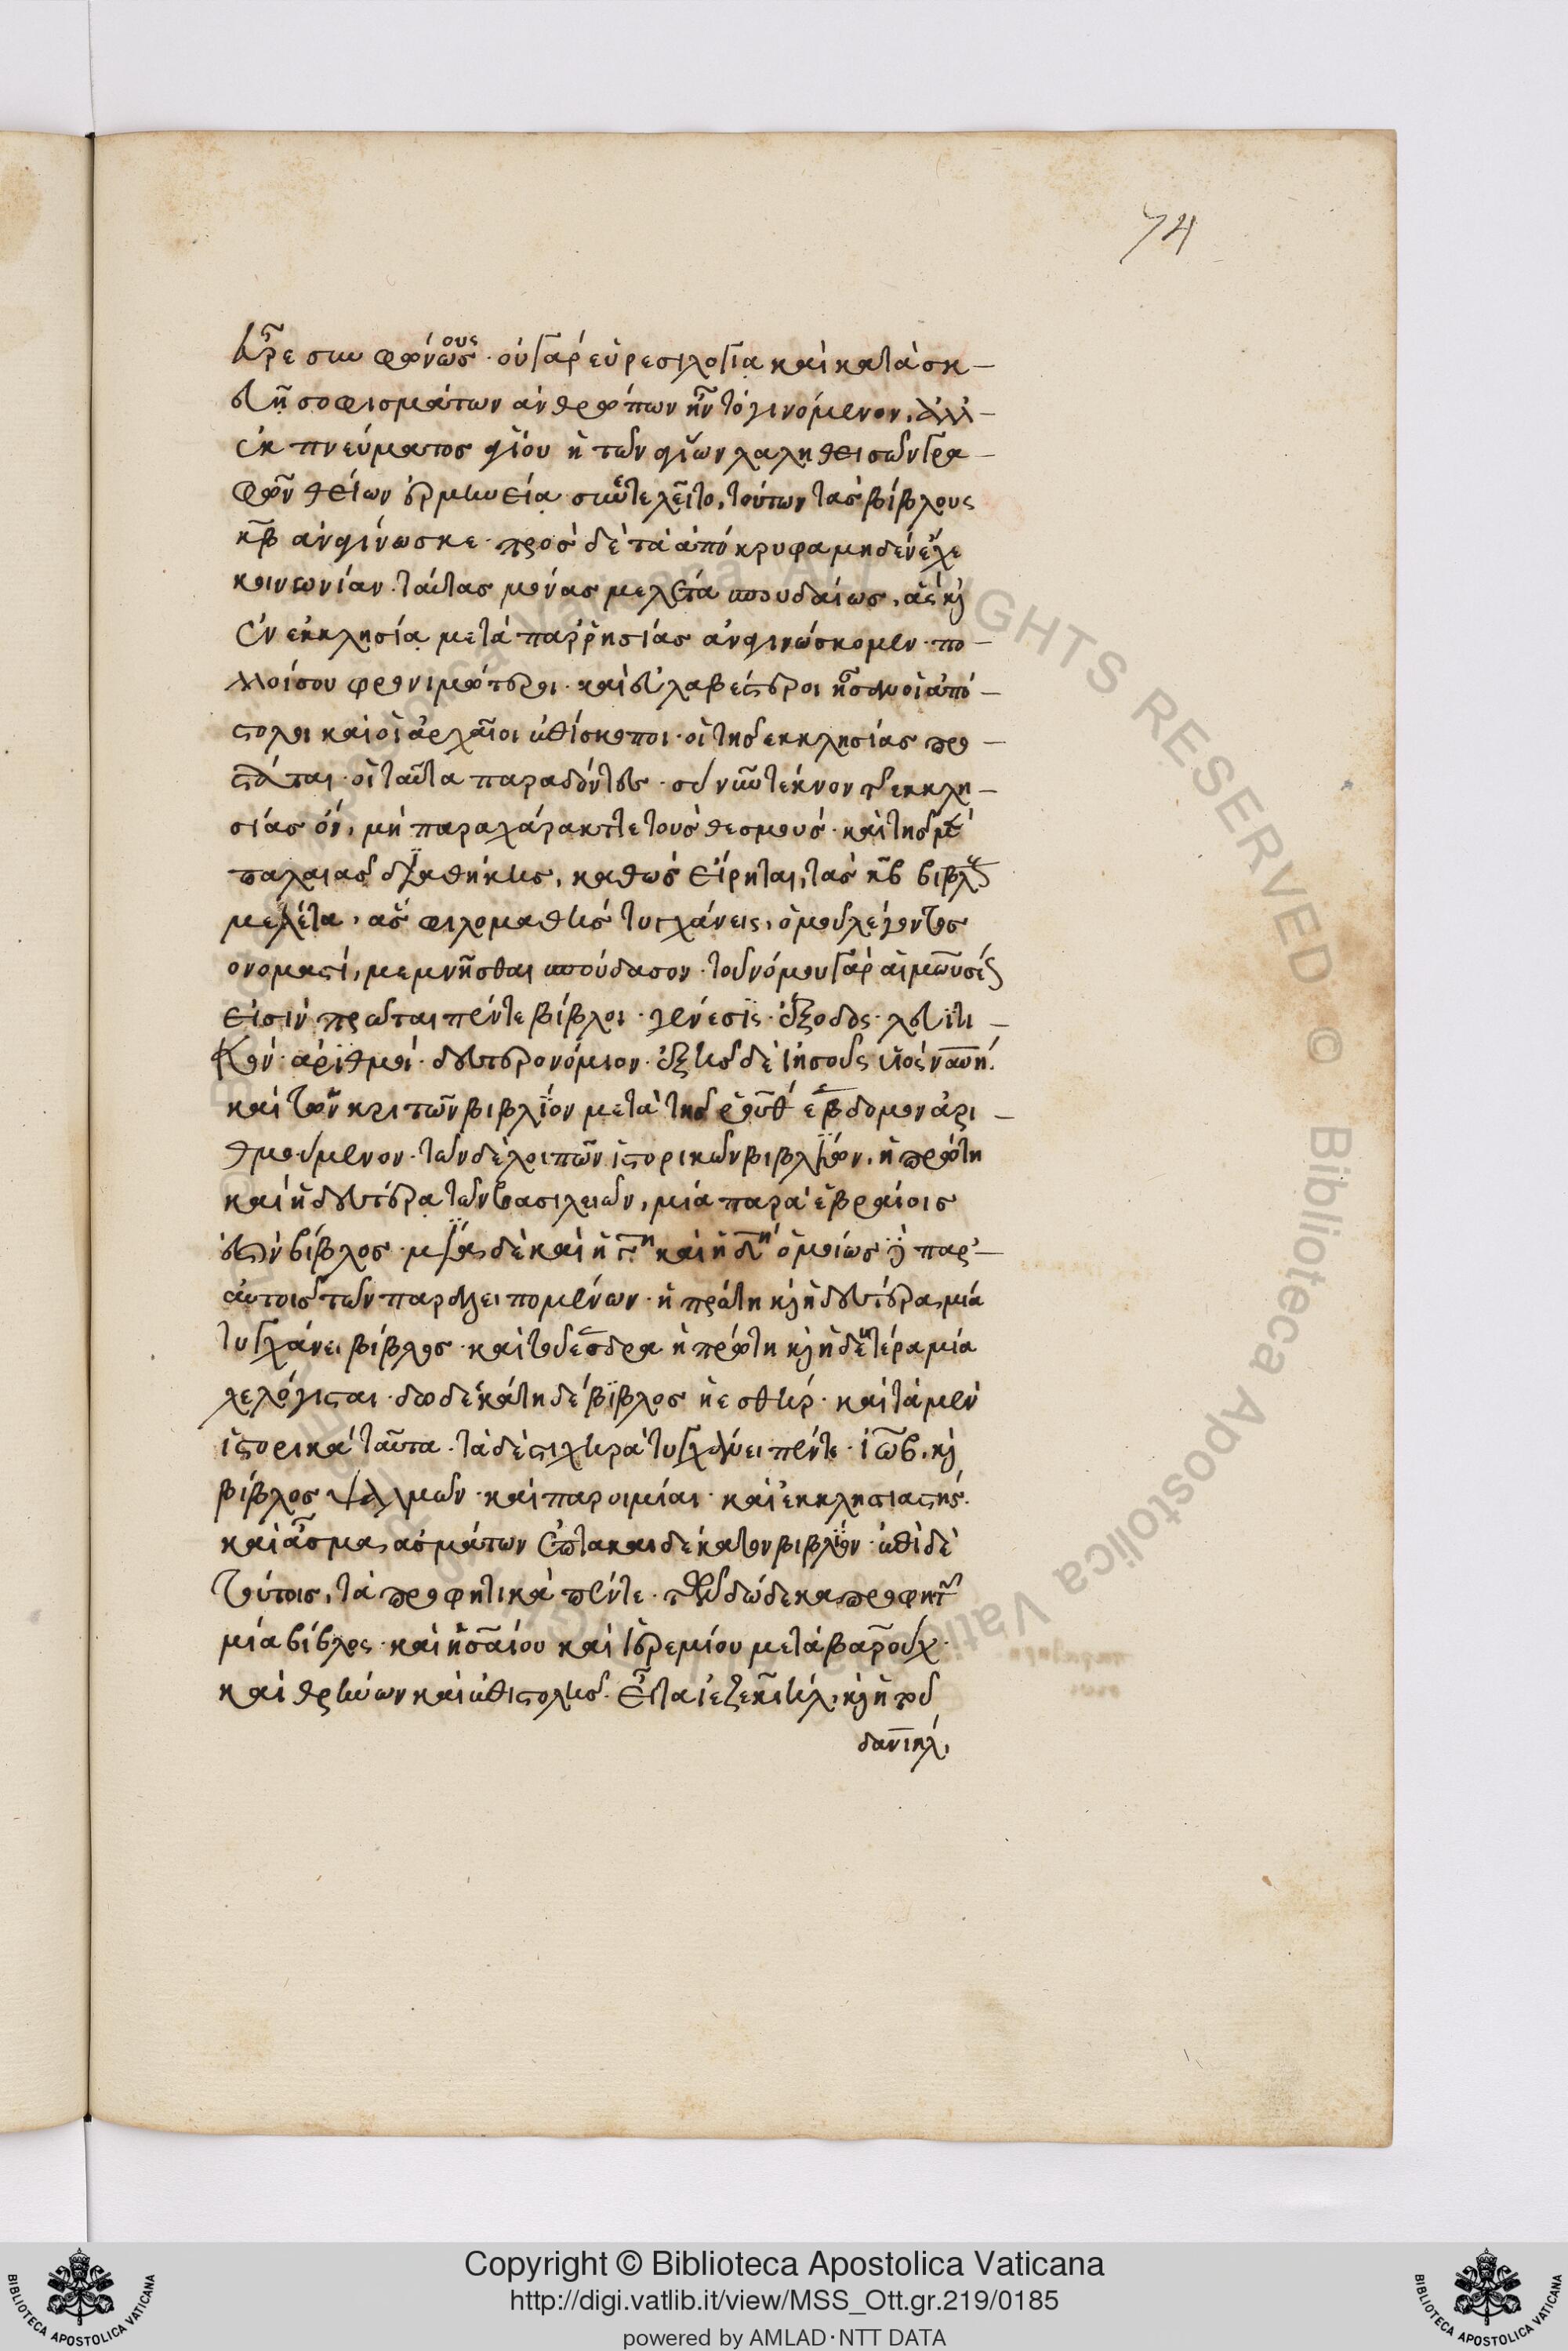 74
εὗρε συμφώνους · οὐ γὰρ εὑρεσιλογία καὶ κατασκ–
ευῇ σοφισμάτων ἀνθρωπων ἦν τὸ γινόμενον, ἀλλ–
ἐκ πνεύματος ἁγίου ἡ τῶν ἁγίων λαληθεισῶν γρα–
φῶν θείων ἑρμηνεία συνετελεῖτο, τούτων τὰς βίβλους
κβ ἀναγίνωσκε · πρὸς δὲ τὰ ἀπόκρυφα μηδὲν ἔχε
κοινωνίαν · ταύτας μόνας μελέτα σπουδαίως, ἃς καὶ
ἐν ἐκκλησίᾳ μετὰ παρρησίας ἀναγινώσκομεν · πο–
λλοί σου φρονιμώτεροι · καὶ εὐλαβέστεροι ἦσαν οἱ ἀπό–
στολοι καὶ οἱ ἀρχαῖοι ἐπίσκοποι · οἱ τῆς ἐκκλησίας προ–
στάται · οἱ ταῦτα παραδόντες · σὺ οὖν τέκνον τῆς ἐκκλη–
σίας ὄν, μὴ παραχάραττε τοὺς θεσμούς · καὶ τῆς μὲν
παλαιᾶς διαθήκης, καθὼς εἴρηται, τὰς κβ βίβλους
μελέτα, ἃς φιλομαθὴς τυγχάνεις, ἐμοῦ λέγοντος
ὀνομαστί, μεμνῆσθαι σπούδασον · τοῦ νόμου γὰρ αἱ μωυσέως
εἰσὶν πρῶται πέντε βίβλοι · γένεσις · ἔξοδος · λευϊτι–
κόν · ἀριθμοί · δευτερονόμιον · ἑξῆς δὲ ἰησοῦς υἱὸς ναυῆ ·
καὶ τῶν κριτῶν βιβλίον μετὰ τῆς ῥοὺθ ἕβδομον ἀρι–
θμούμενον · τῶν δὲ λοιπῶν ἱστορικῶν βιβλίων, ἡ πρώτη
καὶ ἡ δευτέρα τῶν βασιλειῶν, μία παρὰ ἑβραίοις
ἐστὶν βίβλος · μία δὲ καὶ ἡ γη καὶ ἡ δη ὁμοίως · παρ'–
αὐτοῖς τῶν παραλειπομένων · ἡ πρώτη καὶ ἡ δευτέρα, μία
τυγχάνει βίβλος · καὶ τοῦ ἔσδρα ἡ πρώτη καὶ ἡ δευτέρα μία
λελόγισται · δωδεκάτη δὲ βίβλος ἡ ἐσθήρ · καὶ τὰ μὲν
ἱστορικὰ ταῦτα · τὰ δὲ στιχηρὰ τυγχάνει πέντε · ἰώβ, καὶ
βίβλος ψαλμῶν · καὶ παροιμίαι · καὶ ἐκκλησιαστής ·
καὶ ἆσμα ἀσμάτων ἑπτακαιδέκατον βιβλίον · ἐπὶ δὲ
τούτοις, τὰ προφητικὰ πέντε · τῶν δώδεκα προφητῶν
μία βίβλος · καὶ ἠσαΐου καὶ ἱερεμίου μετὰ βαροὺχ ·
καὶ θρήνων καὶ ἐπιστολῆς · εἶτα ἰεζεκιήλ, καὶ ἡ τοῦ
δανιήλ,
Copyright © Biblioteca Apostolica Vaticana
http://digi.vatlib.it/view/MSS_Ott.gr.219/0185
powered by AMLAD·NTT DATA